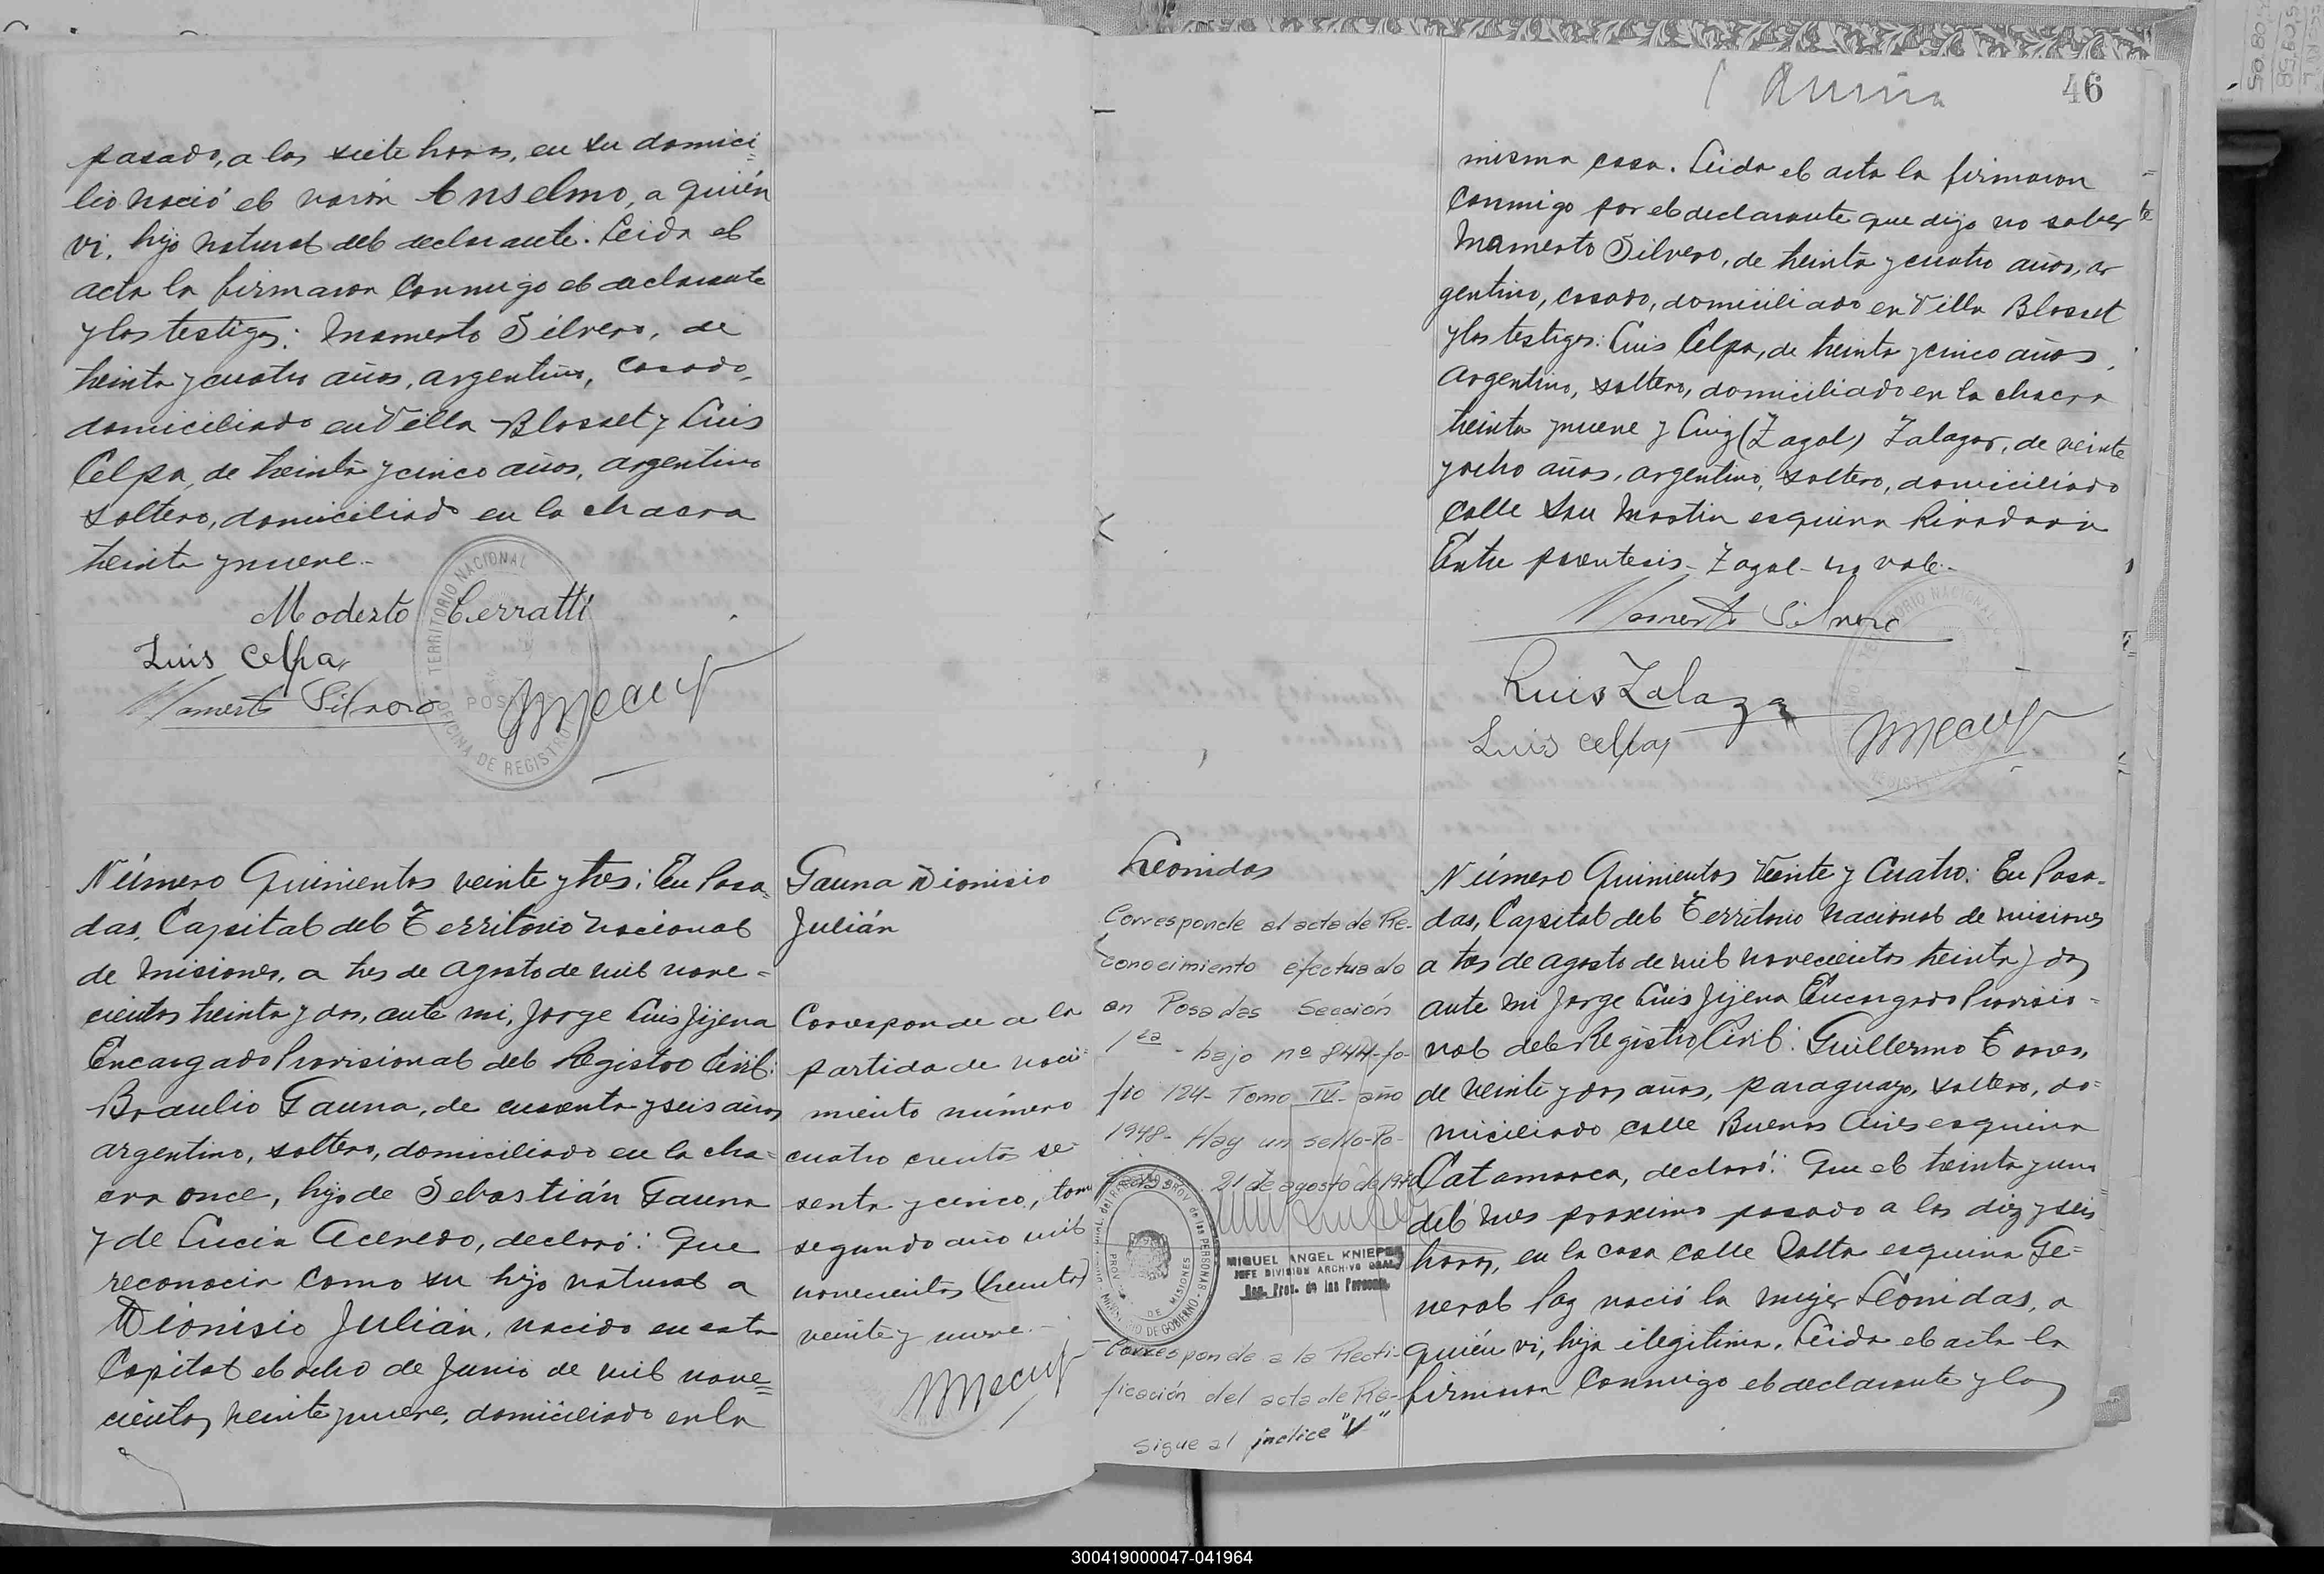 pasado, a las siete horas, en su domici=
lio nació el varón Anselmo, a quién
vi, hijo natural del declarante. Leida el
acta la firmaron conmigo el declarante
y los testigos: Mamerto Silvero, de
treinta y cuatro años, argentino, casado,
domiciliado en Villa Blosset y Luis
Celpa, de treinta y cinco años, argentino
soltero, domiciliado en la chacra
treinta y nueve.-
Modesto Cerratti
Luis Celpa
Mamerto Silvero
TERRITORIO NACIONAL
OFICINA DE REGISTRO
Número Quinientos veinte y tres: En Posa=
das, Capital del Territorio Nacional
de Misiones, a tres de Agosto de mil nove=
cientos treinta y dos, ante mi, Jorge Luis Jijena
Encargado Provisional del Registro Civil:
Braulio Gauna, de cuarenta y seis años
argentino, soltero, domiciliado en la cha=
cra once, hijo de Sebastián Gauna
y de Lucia Acevedo, declaró: Que
reconocia como su hijo natural a
Dionisio Julián, nacido en esta
Capital el ocho de Junio de mil nove=
cientos veinte y nueve, domiciliado en la
Gauna Dionisio
Julián
Corresponde a la
partida de naci=
miento número
cuatro cientos se=
senta y cinco, tomo
segundo año mil
novecientos (treinta)
veinte y nueve.-
46
misma casa. Leida el acta la firmaron
conmigo por el declarante que dijo no saber
Mamerto Silvero, de treinta y cuatro años, ar
gentino, casado, domiciliado en Villa Blosset
y los testigos: Luis Celpa, de treinta y cinco años,
argentino, soltero, domiciliado en la chacra
treinta y nueve y Luis (Zagal) Zalazar, de veinte
y ocho años, argentino, soltero, domiciliado
calle San Martin esquina Rivadavia
Entre parentesis - Zagal - no vale.-
Mamerto Silvero
Luis Zalazar
Luis Celpa
TERRITORIO NACIONAL
Leonidas
Corresponde al acta de Re-
conocimiento efectuado
en Posadas Sección
1ra - bajo nº 844 - fo-
lio 124 - Tomo IV - año
1948 - Hay un sello - Po-
sadas 21 de agosto de
MIGUEL ANGEL KNIEPER
JEFE DIVISION ARCHIVO GRAL
Reg. Prov. de las Personas
PROV. DE MISIONES
Corresponde a la Recti-
ficación del acta de Re-
sigue al indice "V"
Número Quinientos Veinte y Cuatro: En Posa-
das, Capital del Territorio Nacional de Misiones
a tres de agosto de mil novecientos treinta y dos
ante mi Jorge Luis Jijena Encargado Provisio-
nal del Registro Civil: Guillermo Torres,
de veinte y dos años, paraguayo, soltero, do=
miciliado calle Buenos Aires esquina
Catamarca, declaró: Que el treinta y uno
del mes proximo pasado a las diez y seis
horas, en la casa calle Salta esquina Ge=
neral Paz nació la mujer Leonidas, a
quién vi, hija ilegitima. Leida el acta la
firmaron conmigo el declarante y los
300419000047-041964